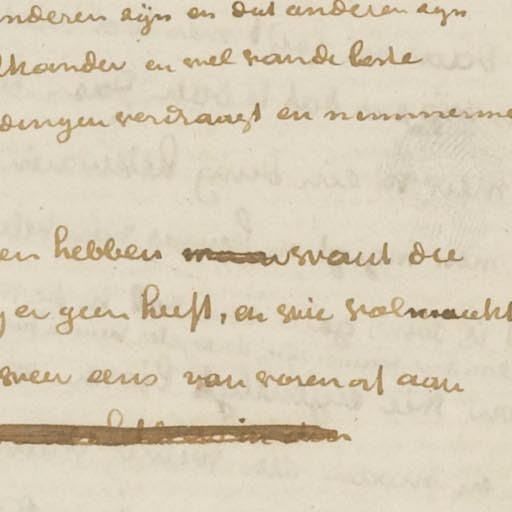 anderen zijn en dat anderen zijn
elkander en wel van de beste
dingen verdraagt en nimmerme
en hebben want die
er geen heeft, en wie volmaakt
weer eens van voren af aan